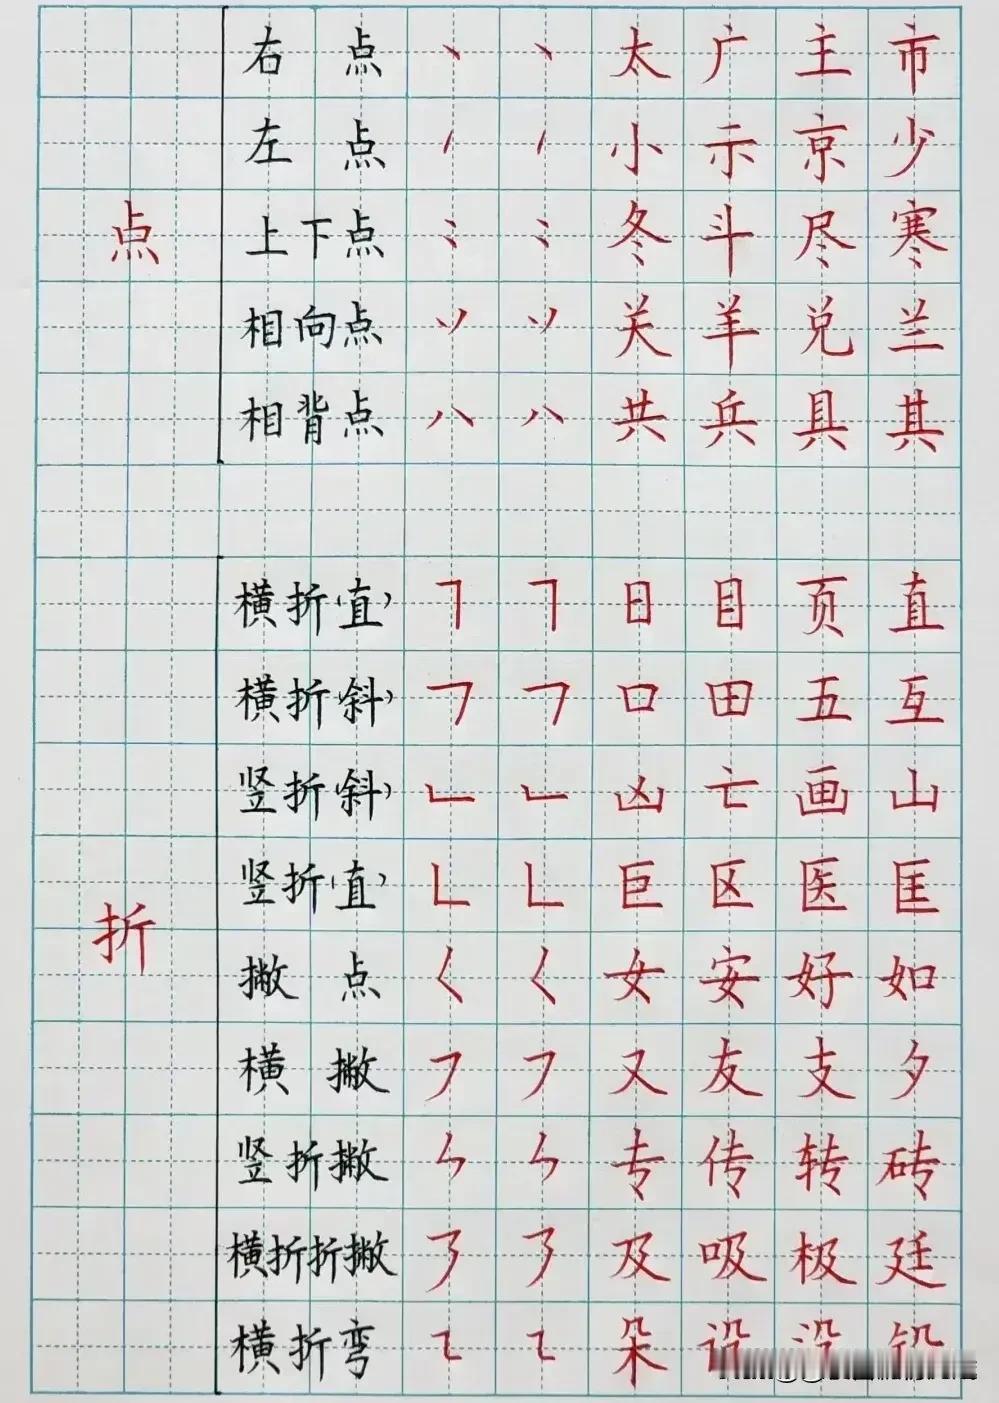 点
右点 丶 丶 太 广 主 市
左点 小 示 京 少
上下点 冬 斗 尽 寒
相向点 丷 丷 关 羊 兑 兰
相背点 八 八 共 兵 具 其
折
横折(直) ㇕ ㇕ 日 目 页 直
横折(斜) ㇕ ㇕ 口 田 五 互
竖折(斜) ㇗ ㇗ 凶 亡 画 山
竖折(直) ㇗ ㇗ 巨 区 医 匡
撇点 ㇛ ㇛ 女 安 好 如
横撇 ㇇ ㇇ 又 友 支 夕
竖折撇 ㇞ ㇞ 专 传 转 砖
横折折撇 ㇋ ㇋ 及 吸 极 廷
横折弯 ㇍ ㇍ 朵 设 没 铅